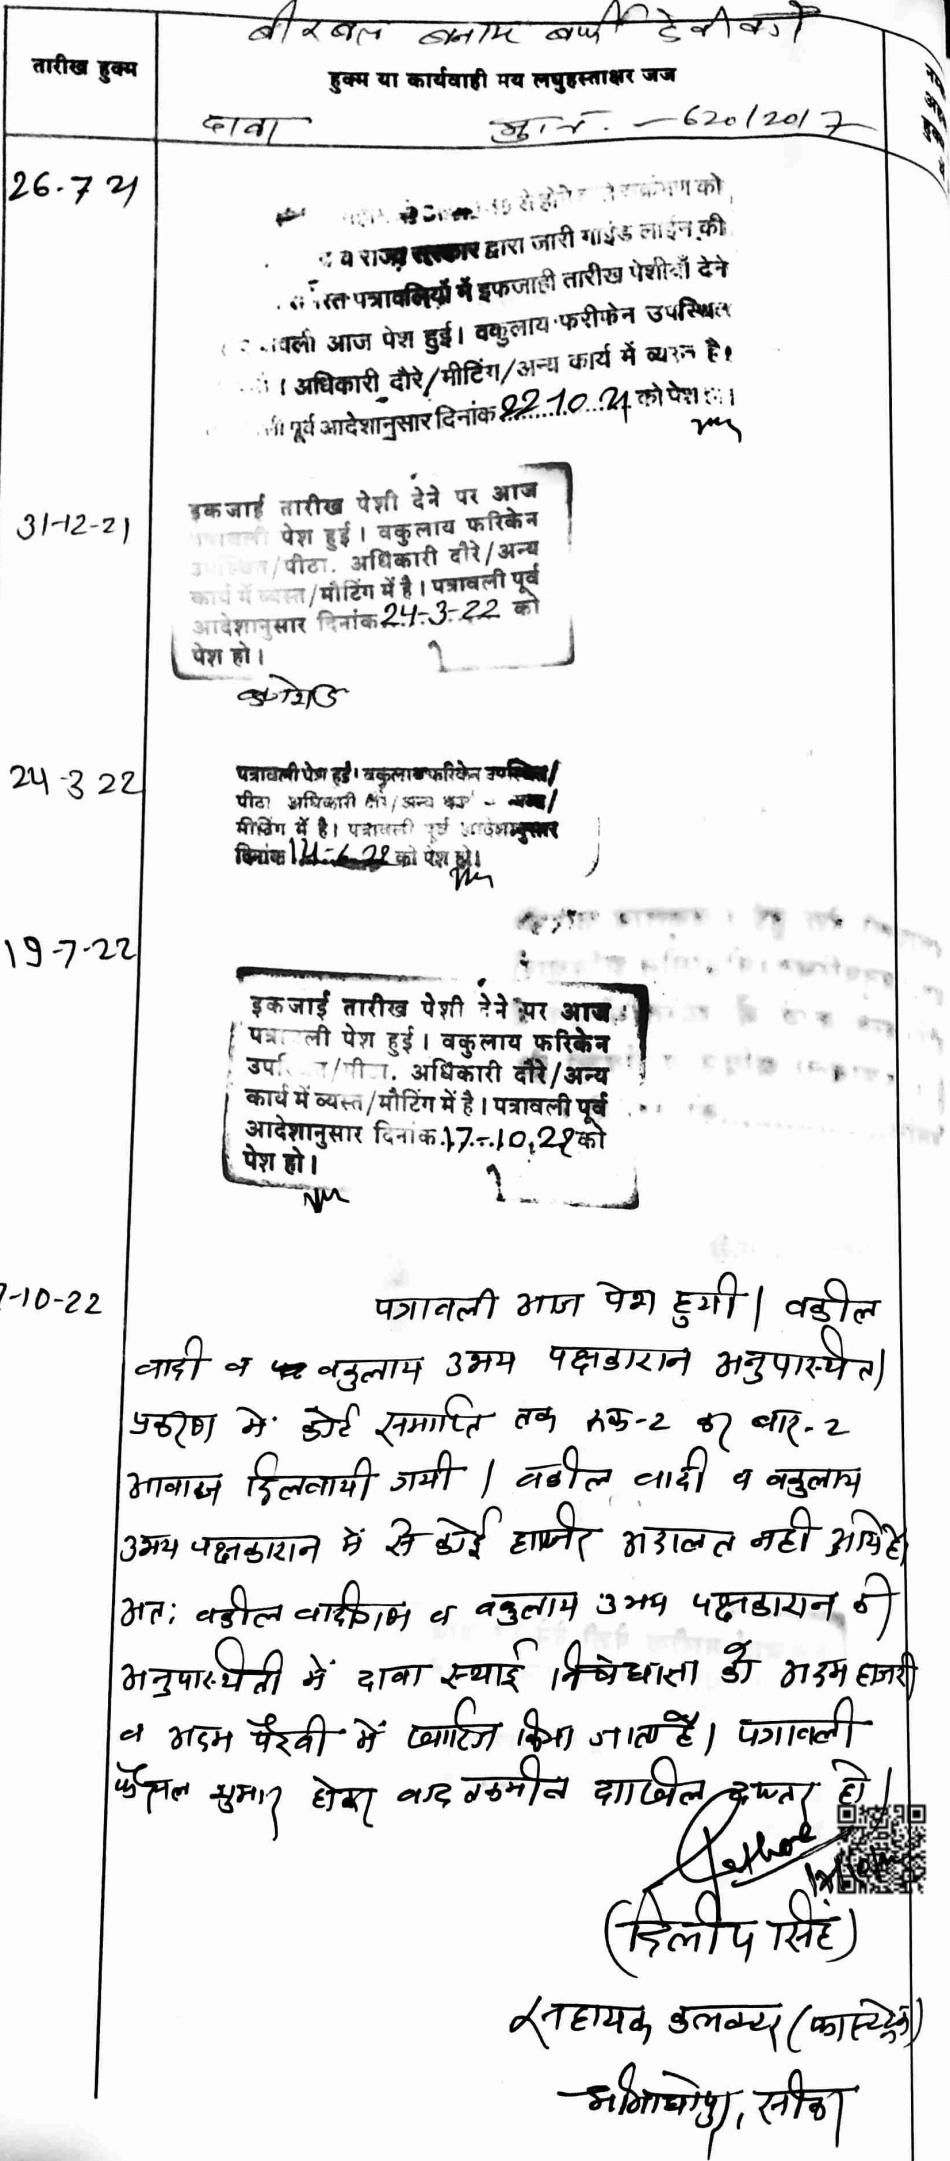 बीरबल बनाम बर्फी देवी वगै
तारीख हुक्म
हुक्म या कार्यवाही मय लघुहस्ताक्षर जज
दावा मु.नं. - 620/2017
26-7-21
से होने संक्रमण को
व राज्य सरकार द्वारा जारी गाईड लाईन की
पत्रावलियों में इकजाही तारीख पेशीयाँ देने
वली आज पेश हुई। वकुलाय फरीकेन उपस्थित
। अधिकारी दौरे/मीटिंग/अन्य कार्य में व्यस्त है।
ली पूर्व आदेशानुसार दिनांक 22.10.21 को पेश हो।
31-12-21
इकजाई तारीख पेशी देने पर आज
पत्रावली पेश हुई। वकुलाय फरिकेन
उपस्थित/पीठा. अधिकारी दौरे/अन्य
कार्य में व्यस्त/मीटिंग में है। पत्रावली पूर्व
आदेशानुसार दिनांक 24-3-22 को
पेश हो।
24-3 22
पत्रावली पेश हुई। वकुलाय फरिकेन उपस्थित/
पीठा अधिकारी दौरे/अन्य कार्य व्यस्त/
मीटिंग में है। पत्रावली पूर्व आदेशानुसार
दिनांक 14-6-22 को पेश हो।
19-7-22
इकजाई तारीख पेशी देने पर आज
पत्रावली पेश हुई। वकुलाय फरिकेन
उपस्थित/पीठा. अधिकारी दौरे/अन्य
कार्य में व्यस्त/मीटिंग में है। पत्रावली पूर्व
आदेशानुसार दिनांक 17-10.22 को
पेश हो।
7-10-22
पत्रावली आज पेश हुयी। वकील
वादी व वकुलाय उभय पक्षकारान अनुपस्थित।
प्रकरण में कोर्ट समाप्ति तक रुक-2 कर बार-2
आवाज दिलवायी गयी। वकील वादी व वकुलाय
उभय पक्षकारान में से कोई हाजिर अदालत नही आये है।
अतः वकील वादीगण व वकुलाय उभय पक्षकारान की
अनुपस्थिती में दावा स्थाई निषेधाज्ञा को अदम हाजरी
व अदम पैरवी में खारिज किया जाता है। पत्रावली
फैसल शुमार होकर बाद तकमील दाखिल दफ्तर हो।
(दिलीप सिंह)
सहायक कलक्टर (फास्टट्रेक)
श्रीमाधोपुर, सीकर